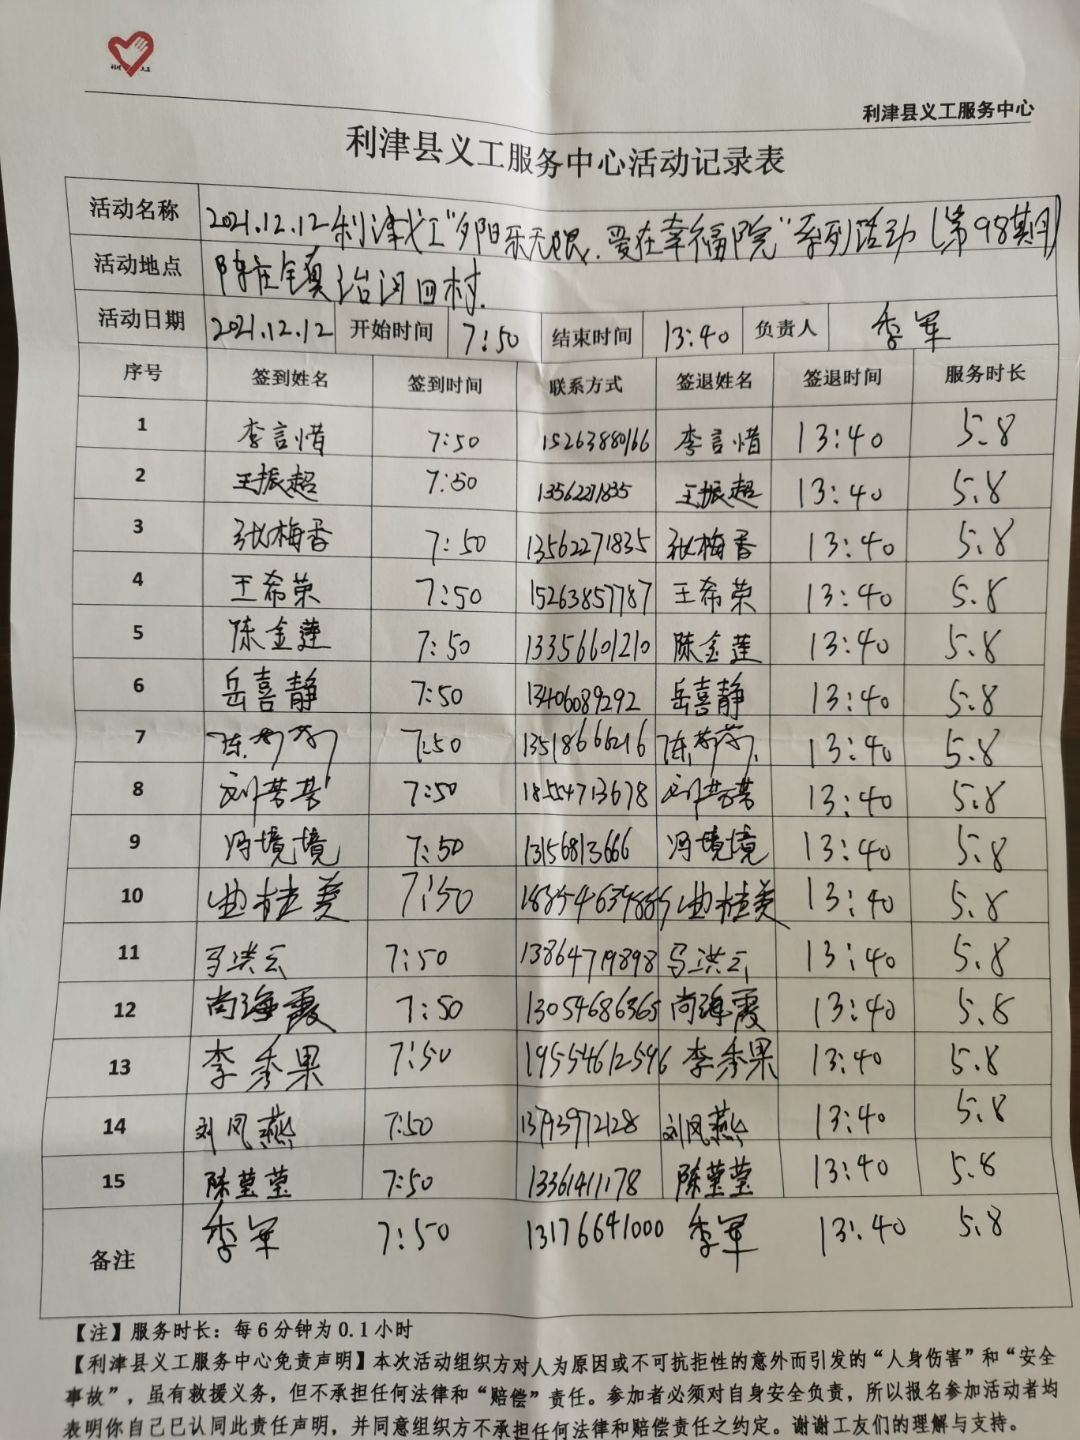 利津 义工
利津县义工服务中心
利津县义工服务中心活动记录表
活动名称 2021.12.12利津义工"夕阳乐无限.爱在幸福院"系列活动(第98期)
活动地点 陈庄镇治河四村.
活动日期 2021.12.12 开始时间 7:50 结束时间 13:40 负责人 李军
序号 签到姓名 签到时间 联系方式 签退姓名 签退时间 服务时长
1 李言惜 7:50 15263880166 李言惜 13:40 5.8
2 王振超 7:50 13562271835 王振超 13:40 5.8
3 张梅香 7:50 13562271835 张梅香 13:40 5.8
4 王希荣 7:50 15263857787 王希荣 13:40 5.8
5 陈金莲 7:50 13356601210 陈金莲 13:40 5.8
6 岳喜静 7:50 13406089292 岳喜静 13:40 5.8
7 7:50 13518666216 13:40 5.8
8 刘芸芸 7:50 18554713678 刘芸芸 13:40 5.8
9 冯境境 7:50 13156813666 冯境境 13:40 5.8
10 曲桂美 7:50 曲桂美 13:40 5.8
11 马洪云 7:50 13864719898 马洪云 13:40 5.8
12 尚海霞 7:50 13054686365 尚海霞 13:40 5.8
13 李秀果 7:50 19554612596 李秀果 13:40 5.8
14 刘凤燕 7:50 13793972128 刘凤燕 13:40 5.8
15 陈莹莹 7:50 13361411178 陈莹莹 13:40 5.8
备注 李军 7:50 13176641000 李军 13:40 5.8
【注】服务时长：每6分钟为0.1小时
【利津县义工服务中心免责声明】本次活动组织方对人为原因或不可抗拒性的意外而引发的“人身伤害”和“安全
事故”，虽有救援义务，但不承担任何法律和“赔偿”责任。参加者必须对自身安全负责，所以报名参加活动者均
表明你自己已认同此责任声明，并同意组织方不承担任何法律和赔偿责任之约定。谢谢工友们的理解与支持。